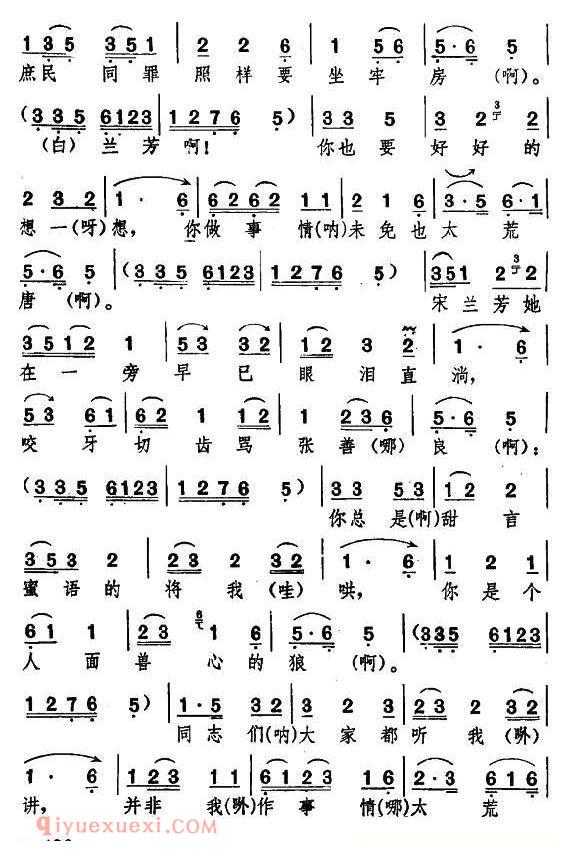 1 3 5 3 5 1 2 2 6 1 5 6 5·6 5
庶民 同罪 照样要 坐牢 房 (啊)。
(3 3 5 6123 1 2 7 6 5) 3 3 5 3 2 3 2
(白) 兰芳啊! 你也要 好好的
2 3 2 1· 6 6 2 6 2 1 1 2 1 6 3·5 6·1
想一(呀)想, 你做事 情(呐)未免也太 荒
5·6 5 (3 3 5 6123 1 2 7 6 5) 3 5 1 2 3 2
唐 (啊)。 宋兰芳她
3 5 1 2 1 5 3 3 2 1 2 3 2 1· 6
在一 旁早已 眼泪直淌,
5 3 6 1 6 2 1 1 2 1 2 3 6 5·6 5
咬牙切齿骂 张善(哪)良 (啊);
(3 3 5 6123 1 2 7 6 5) 3 3 5 3 1 2 2
你总是(啊)甜 言
3 5 3 2 2 3 2 3 2 1· 6 1 2 1
蜜语的 将我(哇) 哄, 你是个
6 1 1 2 3 6 1 6 5·6 5 (3 3 5 6123
人面兽 心的狼 (啊)。
1 2 7 6 5) 1·5 3 2 3 2 3 2 3 2
同志们(呐)大家都听我(咻)
1· 6 1 2 3 1 1 6 1 2 3 1 2 2·3 5 6
讲, 并非我(咻)作事 情(哪)太 荒
qiyuexuexi.com